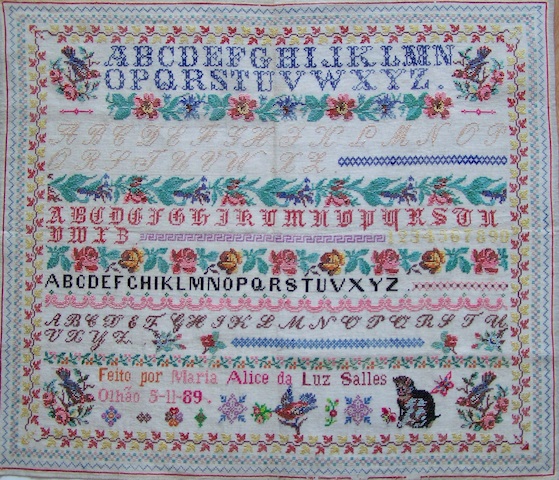 ABCDEFGHIJKLMN
OPQRSTUVWXYZ.
ABCDEFGHIKLMNOP
QRSTUVW XYZ
ABCDEFGHIJKLMNOPQRSTU
VWXZ 1234567890
ABCDEFGHIKLMNOPQRSTUVXYZ
ABCDEFGHIKLMNOPQRSTU
VXYZ
Feito por Maria Alice da Luz Salles
Olhão 5-11-89.